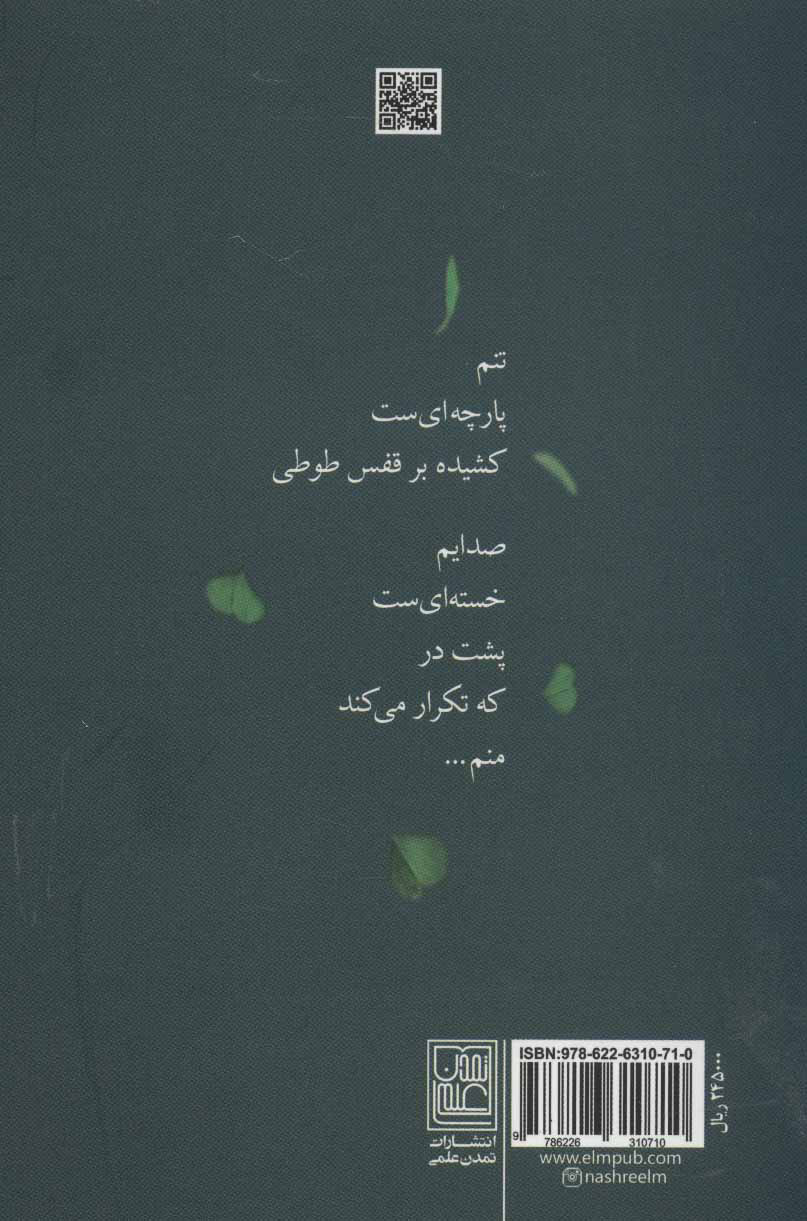 تنم
پارچه‌ای‌ست
کشیده بر قفس طوطی
صدایم
خسته‌ای‌ست
پشت در
که تکرار می‌کند
منم...
تمدن
علمی
انتشارات
تمدن‌علمی
ISBN:978-622-6310-71-0
9 786226 310710
۲۴۵۰۰۰ ریال
www.elmpub.com
nashreelm